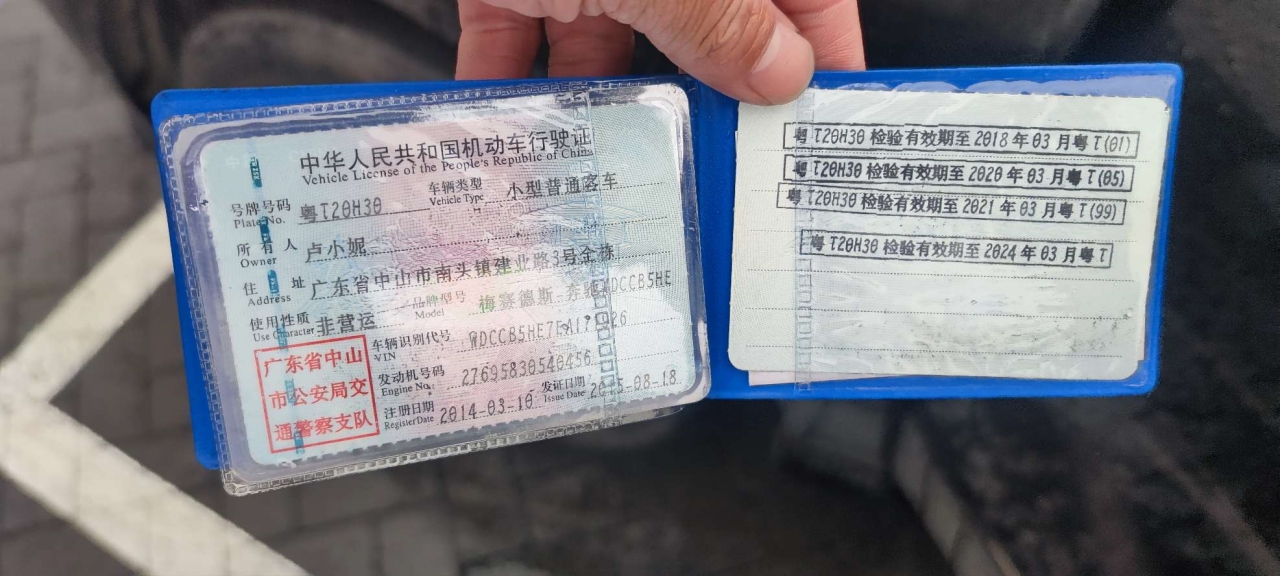 中华人民共和国机动车行驶证
Vehicle License of the People's Republic of China
号牌号码 粤T20H30 车辆类型 小型普通客车
Plate No. Vehicle Type
所有人 卢小妮
Owner
住址 广东省中山市南头镇建业路3号全栋
Address
使用性质 非营运 品牌型号 梅赛德斯-奔驰WDCCB5HE
Use Character Model
广东省中山
市公安局交
通警察支队
车辆识别代号
VIN
发动机号码 27695830540456
Engine No.
注册日期 2014-03-10 发证日期 2015-08-18
Register Date Issue Date
粤T20H30 检验有效期至 2018 年 03 月粤T(01)
粤T20H30 检验有效期至 2020 年 03 月粤T(05)
粤T20H30 检验有效期至 2021 年 03 月粤T(99)
粤T20H30 检验有效期至 2024 年 03 月粤T